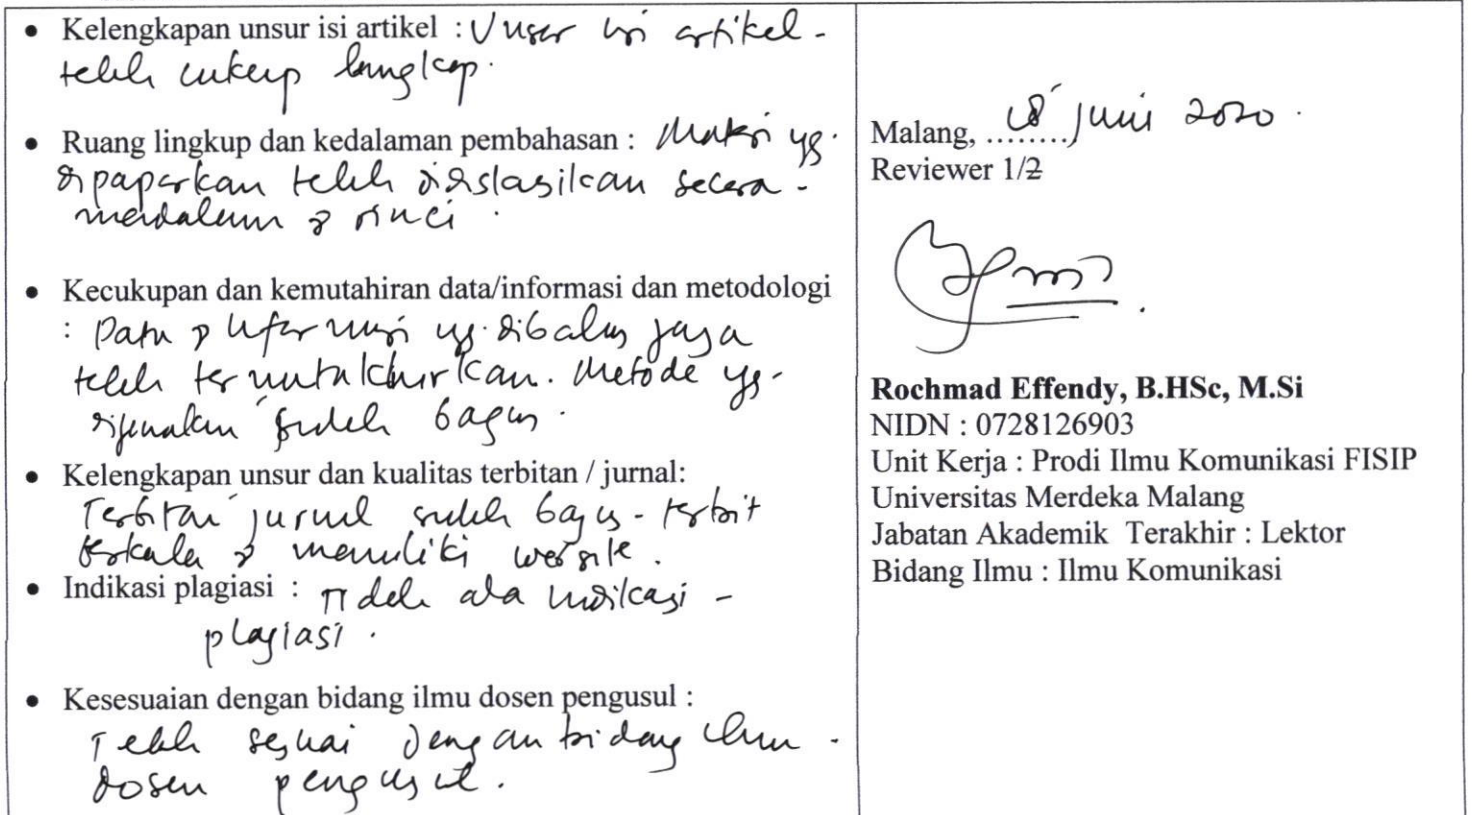 • Kelengkapan unsur isi artikel : Unsur isi artikel
telah cukup lengkap.
• Ruang lingkup dan kedalaman pembahasan : Materi yg.
dipaparkan telah secara
mendalam & rinci.
• Kecukupan dan kemutahiran data/informasi dan metodologi
: Data & informasi yg. dibahas juga
telah termutakhirkan. Metode yg.
digunakan sudah bagus.
• Kelengkapan unsur dan kualitas terbitan / jurnal:
Terbitan jurnal sudah bagus - terbit
berkala & memiliki website.
• Indikasi plagiasi : Tidak ada indikasi -
plagiasi.
• Kesesuaian dengan bidang ilmu dosen pengusul :
Telah sesuai dengan bidang ilmu
dosen pengusul.
Malang, ......... 18 Juni 2020.
Reviewer 1/2
Rochmad Effendy, B.HSc, M.Si
NIDN : 0728126903
Unit Kerja : Prodi Ilmu Komunikasi FISIP
Universitas Merdeka Malang
Jabatan Akademik Terakhir : Lektor
Bidang Ilmu : Ilmu Komunikasi